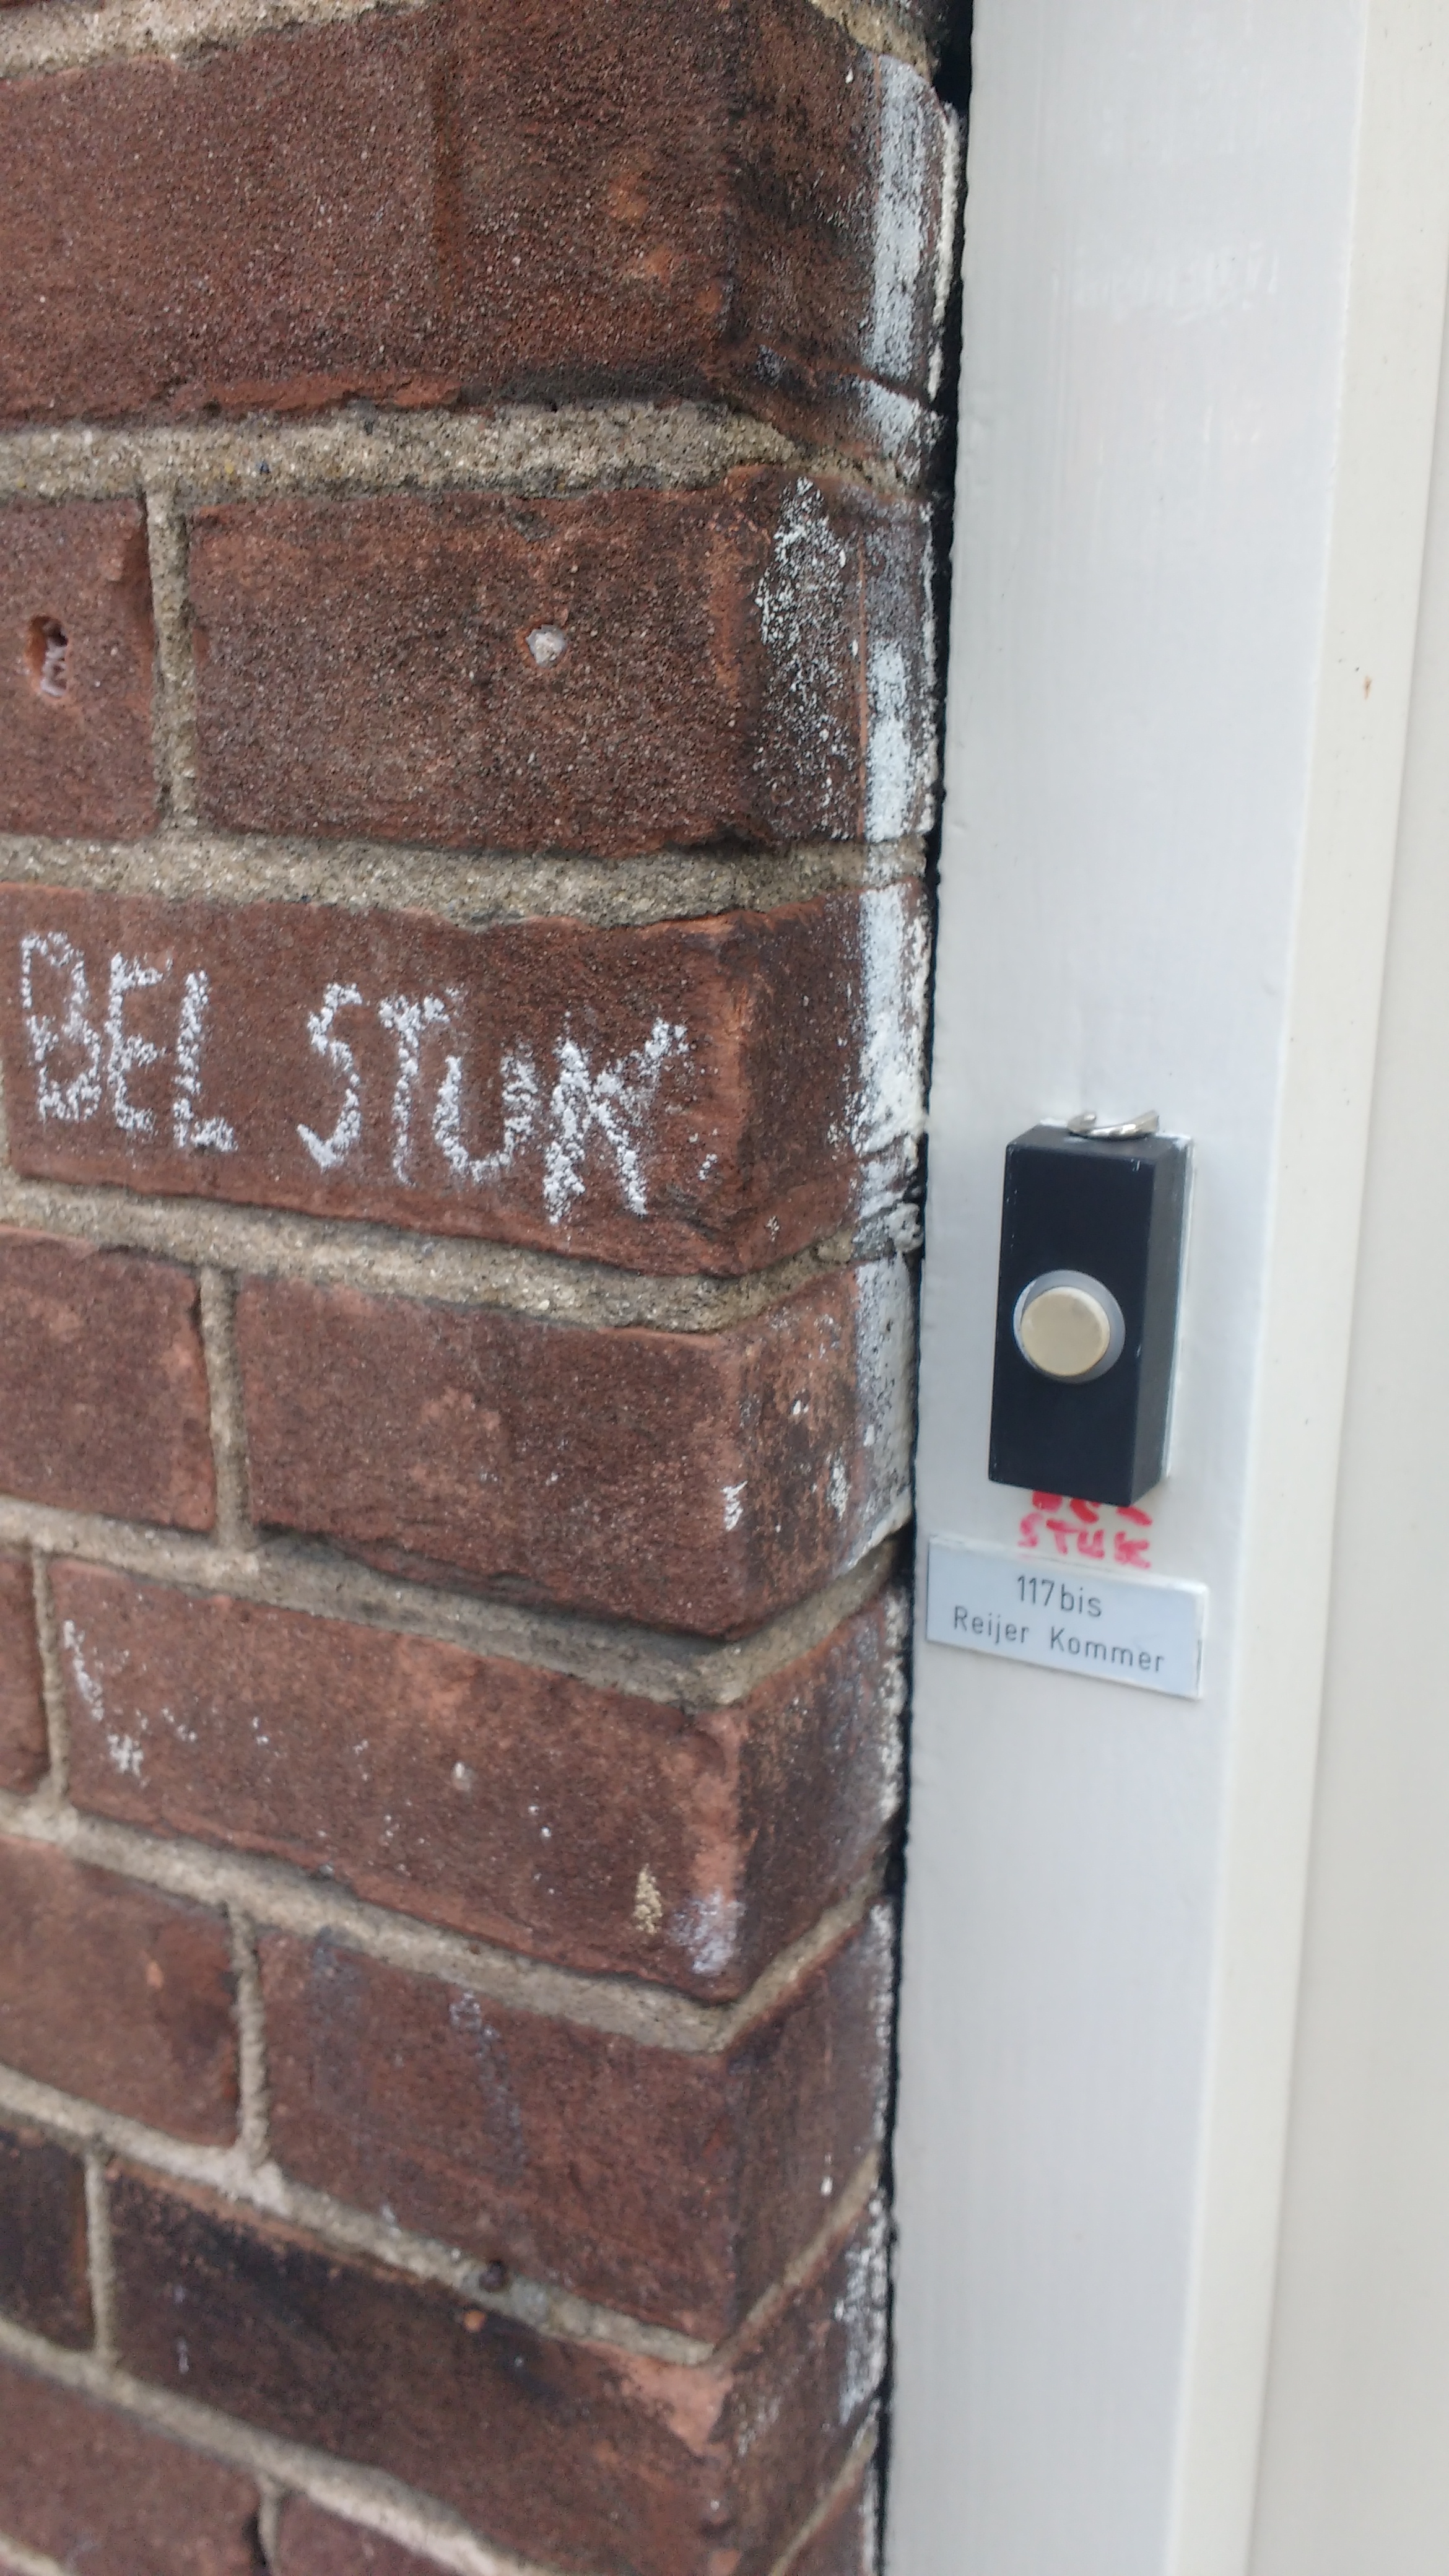 BEL STUK
STUK
117bis
Reijer Kommer